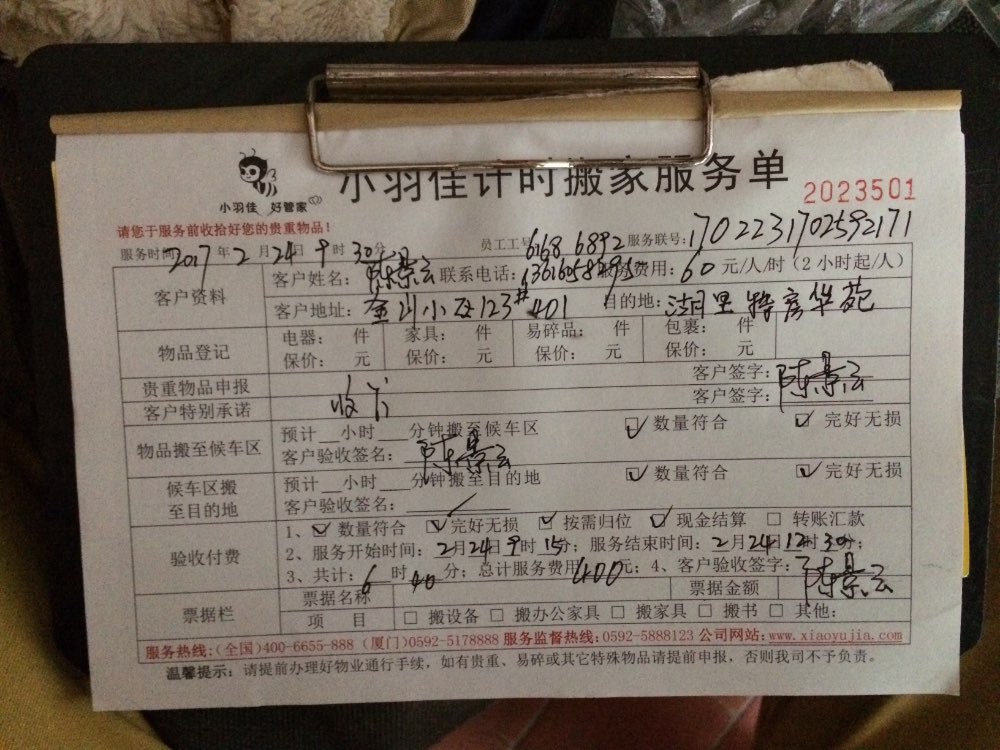 小羽佳计时搬家服务单
小羽佳 好管家
2023501
请您于服务前收拾好您的贵重物品！
服务时间 2017年2月24日9时30分 员工工号 6168 6892 服务联号：1702231702592171
客户资料
客户姓名：陈景云 联系电话： 服务费用：60元/人/时（2小时起/人）
客户地址：金山小区123#401 目的地：湖里特房华苑
物品登记
电器： 件 家具： 件 易碎品： 件 包裹： 件
保价： 元 保价： 元 保价： 元 保价： 元
贵重物品申报 客户签字：陈景云
客户特别承诺 客户签字：
物品搬至候车区
预计__小时___分钟搬至候车区 ☑ 数量符合 ☑ 完好无损
客户验收签名：陈景云
候车区搬至目的地
预计__小时___分钟搬至目的地 ☑ 数量符合 ☑ 完好无损
客户验收签名：
验收付费
1、☑ 数量符合 ☑ 完好无损 ☑ 按需归位 ☑ 现金结算 □ 转账汇款
2、服务开始时间：2月24日9时15分；服务结束时间：2月24日12时30分；
3、共计：6时40分；总计服务费用400元；4、客户验收签字：陈景云
票据栏
票据名称 票据金额
项 目 □ 搬设备 □ 搬办公家具 □ 搬家具 □ 搬书 □ 其他：
服务热线：(全国)400-6655-888 (厦门)0592-5178888 服务监督热线：0592-5888123 公司网站：www.xiaoyujia.com
温馨提示：请提前办理好物业通行手续，如有贵重、易碎或其它特殊物品请提前申报，否则我司不予负责。